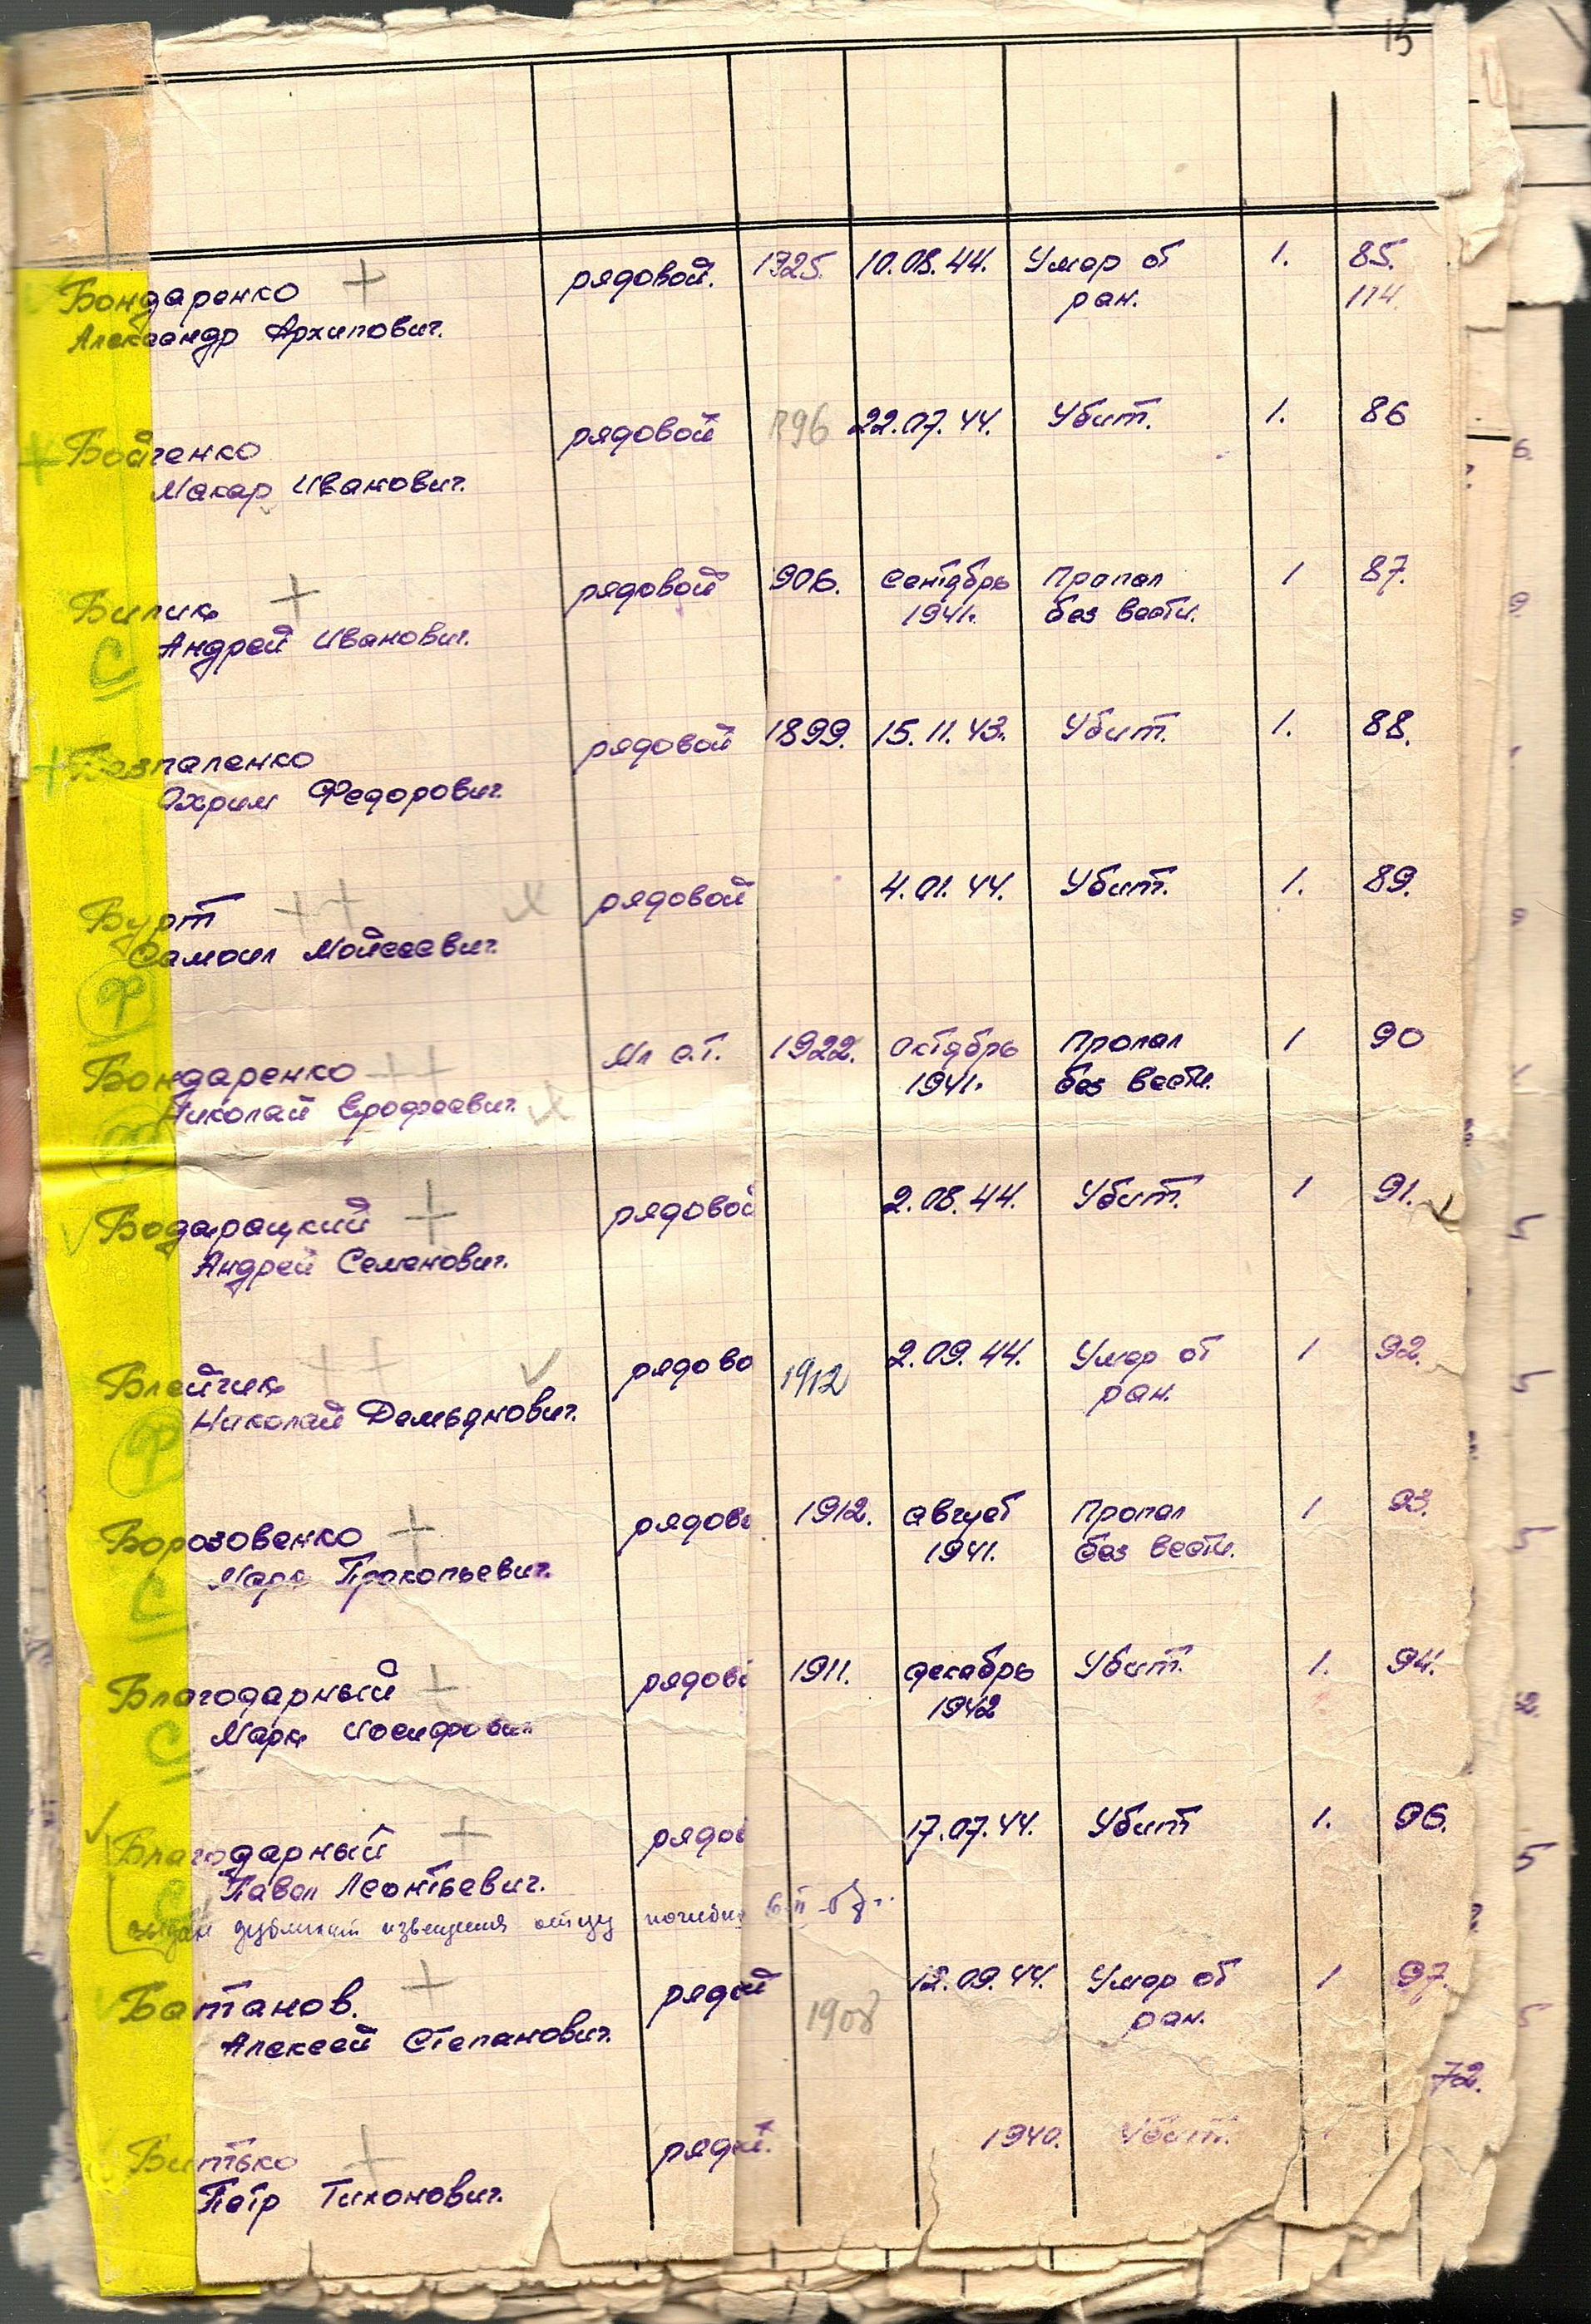 15
Бондаренко + рядовой. 1925. 10.08.44. Умер от 1. 85.
Александр Архипович. ран. 114.
+ Бойченко рядовой 896 22.07.44. Убит. 1. 86
Макар Иванович.
Билик + рядовой 906. сентябрь Пропал 1 87.
Андрей Иванович. 1941г. без вести.
С
+ Безпаленко рядовой 1899. 15.11.43. Убит. 1. 88.
Охрим Федорович.
Бурт ++ х рядовой 4.01.44. Убит. 1. 89.
Самоил Мойсеевич.
Ф
Бондаренко ++ Мл с.т. 1922. октябрь Пропал 1 90
Николай Ерофеевич. х 1941г. без вести.
Ф
Бодарацкий + рядовой 2.08.44. Убит. 1 91.
Андрей Семенович.
Блейчик ++ рядово 1912 2.09.44. Умер от 1 92.
Николай Демьянович. ран.
Ф
Борозовенко + рядово 1912. август Пропал 1 93.
Марк Прокопьевич. 1941. без вести.
С
Благодарный + рядово 1911. декабрь Убит. 1. 94.
Марк Иосифович 1942
С
Благодарный + рядов 17.07.44. Убит 1. 96.
Павел Леонтьевич.
выдан дубликат извещения отцу погибш
Баштанов. + рядой 1908 12.09.44. Умер от 1 97.
Алексей Степанович. ран.
72.
Битько + рядой. 1940. Убит.
Петр Тихонович.